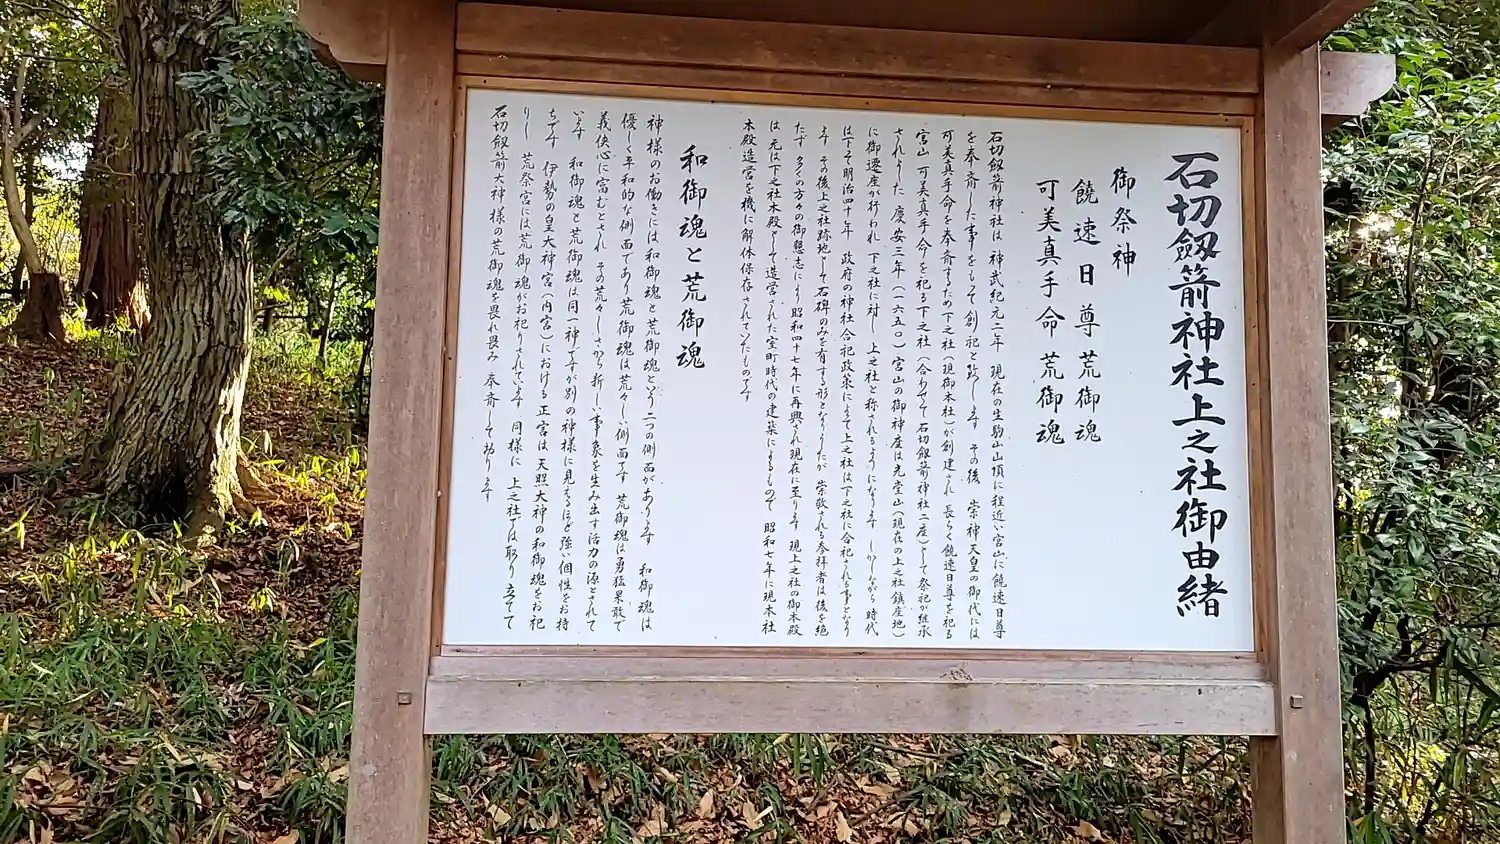 石切劔箭神社上之社御由緒
御祭神
饒速日尊 荒御魂
可美真手命 荒御魂
石切劔箭神社は 神武紀元二年 現在の生駒山山頂に程近い宮山に饒速日尊
を奉斎した事をもって創祀と致します その後 崇神天皇の御代には
可美真手命を奉斎するため下之社(現御本社)が創建され 長らく饒速日尊を祀る
宮山 可美真手命を祀る下之社(合わせて石切劔箭神社二座)として祭祀が継承
されました 慶安三年(一六五〇)宮山の御神座は元堂山(現在の上之社鎮座地)
に御遷座が行われ 下之社に対し 上之社と称されるようになります しかしながら 時代
は下そ明治四十年 政府の神社合祀政策によって上之社は下之社に合祀される事となり
ます その後上之社跡地として石碑のみを有する形となりましたが 崇敬される参拝者は後を絶
たず 多くの方々の御懇志により昭和四十七年に再興され現在に至ります 現上之社の御本殿
は元は下之社本殿として造営された室町時代の建築によるもので 昭和七年に現本社
本殿造営を機に解体保存されていたものです
和御魂と荒御魂
神様のお働きには和御魂と荒御魂という 二つの側面があります 和御魂は
優しく平和的な側面であり 荒御魂は荒々しい側面です 荒御魂は勇猛果敢で
義侠心に富むとされ その荒々しさから新しい事象を生み出す活力の源とされて
います 和御魂と荒御魂は同一神ですが別の神様に見えるほど強い個性をお持
ちです 伊勢の皇大神宮(内宮)における正宮は 天照大神の和御魂をお祀
りし 荒祭宮には荒御魂がお祀りされています 同様に 上之社では取り立てて
石切劔箭大神様の荒御魂を畏れ畏み 奉斎しております